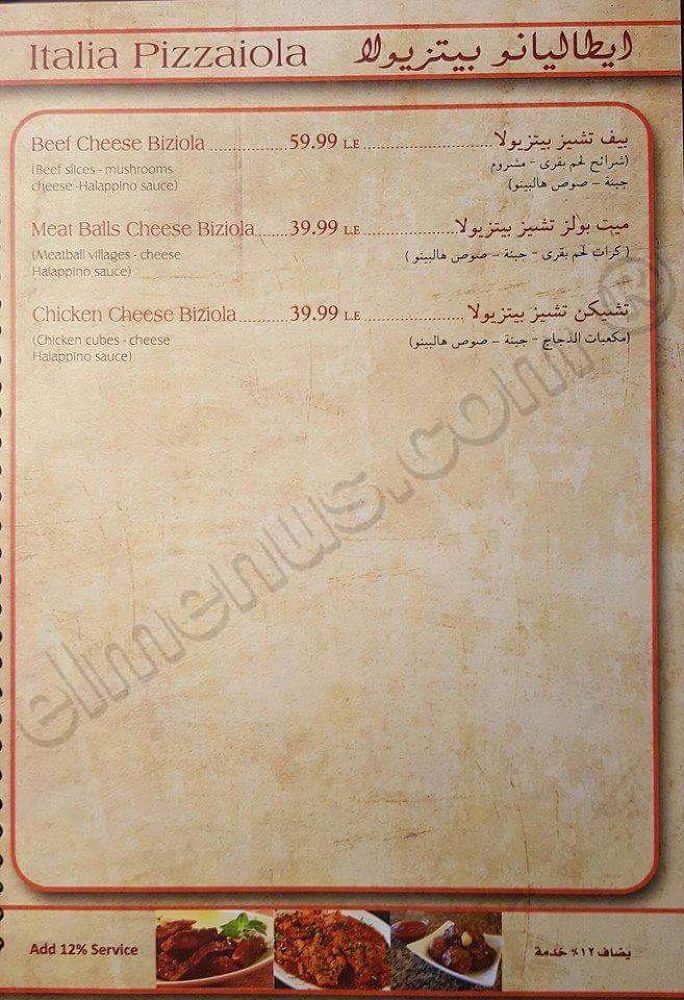 Italia Pizzaiola ايطاليانو بيتزيولا
Beef Cheese Biziola ........ 59.99 L.E ........ بيف تشيز بيتزيولا
(Beef slices - mushrooms (شرائح لحم بقرى - مشروم
cheese-Halappino sauce) جبنة - صوص هالبينو)
Meat Balls Cheese Biziola ........ 39.99 L.E ........ ميت بولز تشيز بيتزيولا
(Meatball villages - cheese ( كرات لحم بقرى - جبنة - صوص هالبينو )
Halappino sauce)
Chicken Cheese Biziola ........ 39.99 L.E ........ تشيكن تشيز بيتزيولا
(Chicken cubes - cheese (مكعبات الدجاج - جبنة - صوص هالبينو)
Halappino sauce)
elmenus.com ®
Add 12% Service يضاف ١٢٪ خدمة